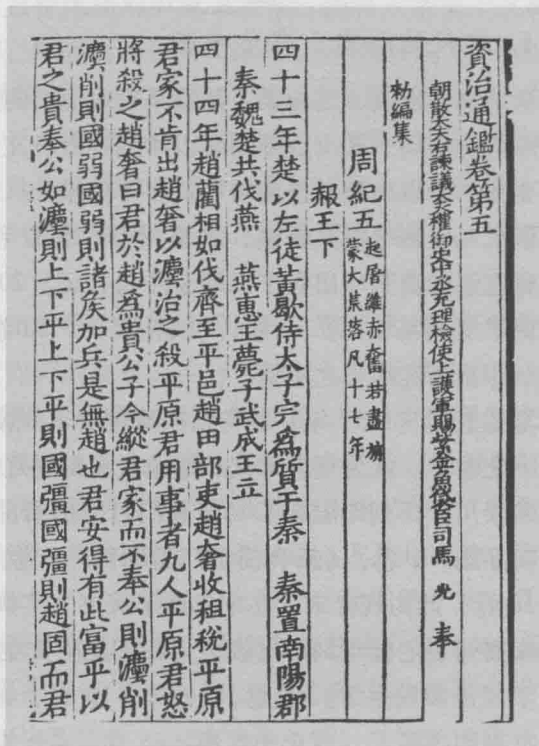 資治通鑑卷第五
朝散大夫右諫議大夫權御史中丞充理檢使上護軍賜紫金魚袋臣司馬 光 奉
勑編集
周紀五起屠維赤奮若盡旃蒙大荒落凡十七年
赧王下
四十三年楚以左徒黃歇侍太子完爲質于秦 秦置南陽郡
秦魏楚共伐燕 燕惠王薨子武成王立
四十四年趙藺相如伐齊至平邑趙田部吏趙奢收租稅平原
君家不肯出趙奢以灋治之殺平原君用事者九人平原君怒
將殺之趙奢曰君於趙爲貴公子今縱君家而不奉公則灋削
灋削則國弱國弱則諸矦加兵是無趙也君安得有此富乎以
君之貴奉公如灋則上下平上下平則國彊國彊則趙固而君